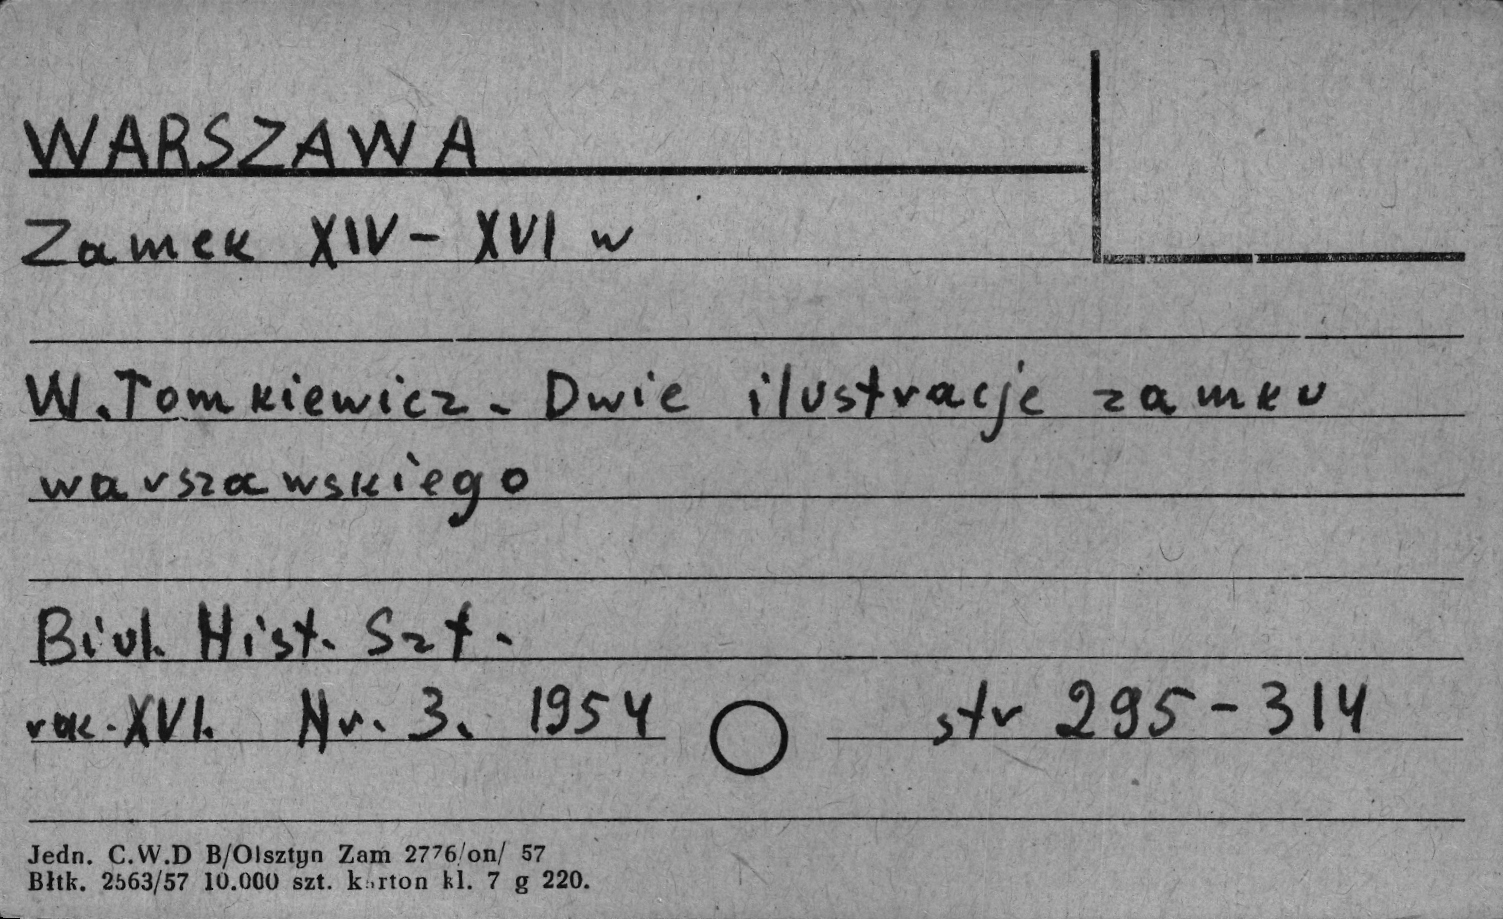 WARSZAWA
Zamek XIV - XVI w
W. Tomkiewicz. Dwie ilustracje zamku
warszawskiego
Biul. Hist. Szt.
rok. XVI. Nr. 3. 1954 str 295-314
Jedn. C.W.D B/Olsztyn Zam 2776/on/ 57
Błtk. 2563/57 10.000 szt. karton kl. 7 g 220.